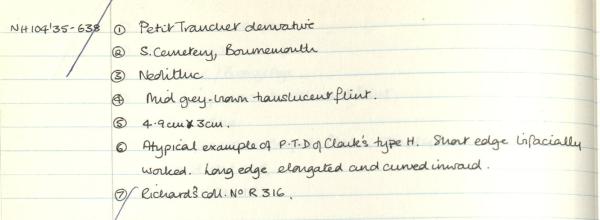 NH 104'35-638 ① Petit Trancher derivative
② S. Cemetery, Bournemouth
③ Neolithic
④ Mid grey-brown translucent flint.
⑤ 4.9cm x 3cm.
⑥ Atypical example of P.T.D of Clark's type H. Short edge bifacially
worked. Long edge elongated and curved inward.
⑦ Richard's coll. No R 316.